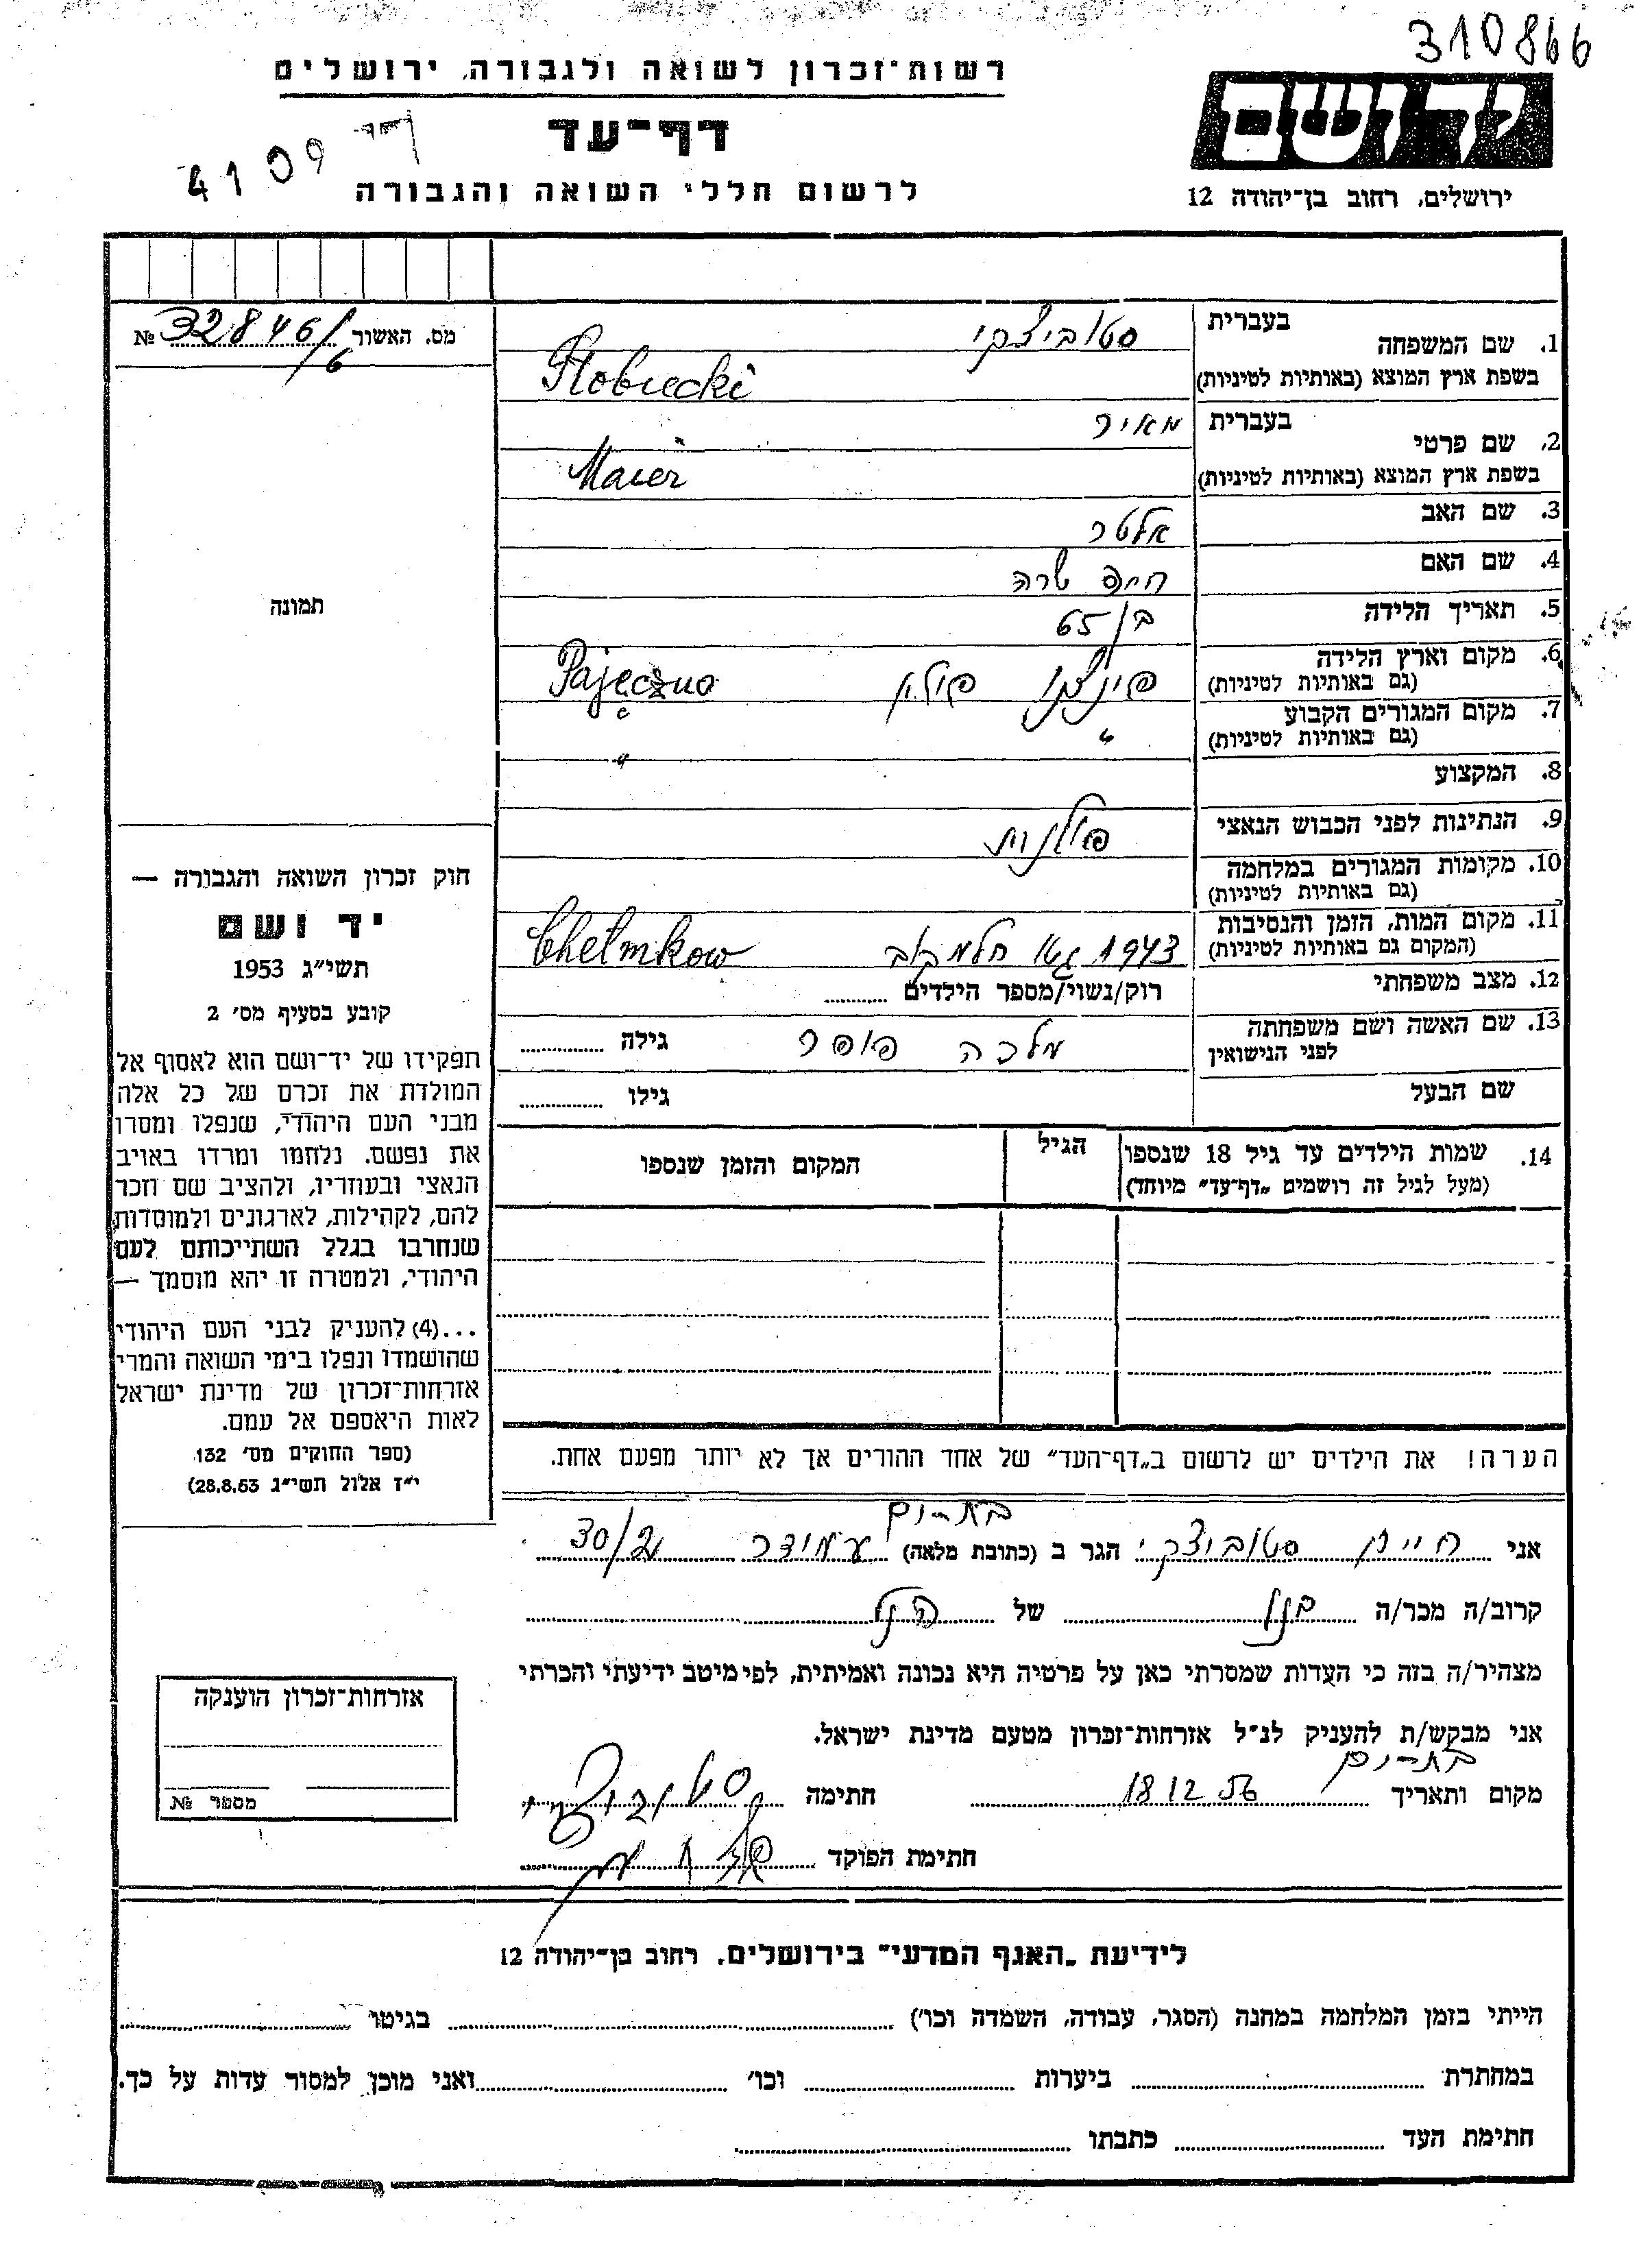 310866
רשות־זכרון לשואה ולגבורה, ירושלים
יד ושם
דף־עד
4109
לרשום חללי השואה והגבורה
ירושלים, רחוב בן־יהודה 12
מס. האשור № 32846/6
1. שם המשפחה בעברית סטוביצקי
בשפת ארץ המוצא (באותיות לטיניות) Stobiecki
2. שם פרטי בעברית מאיר
בשפת ארץ המוצא (באותיות לטיניות) Maier
3. שם האב אלטר
4. שם האם חיה שרה
5. תאריך הלידה בן 65
6. מקום וארץ הלידה פולין Pajęczno
(גם באותיות לטיניות)
7. מקום המגורים הקבוע " "
(גם באותיות לטיניות)
8. המקצוע
9. הנתינות לפני הכבוש הנאצי פולנית
10. מקומות המגורים במלחמה
(גם באותיות לטיניות)
11. מקום המות, הזמן והנסיבות 1943 גטו חלמקוב Chełmkow
(המקום גם באותיות לטיניות)
12. מצב משפחתי רוק/נשוי/מספר הילדים
13. שם האשה ושם משפחתה מלכה גילה
לפני הנישואין
שם הבעל גילו
14. שמות הילדים עד גיל 18 שנספו הגיל המקום והזמן שנספו
(מעל לגיל זה רושמים „דף־עד" מיוחד)
תמונה
חוק זכרון השואה והגבורה —
יד ושם
תשי״ג 1953
קובע בסעיף מס׳ 2
תפקידו של יד־ושם הוא לאסוף אל
המולדת את זכרם של כל אלה
מבני העם היהודי, שנפלו ומסרו
את נפשם, נלחמו ומרדו באויב
הנאצי ובעוזריו, ולהציב שם וזכר
להם, לקהילות, לארגונים ולמוסדות
שנחרבו בגלל השתייכותם לעם
היהודי, ולמטרה זו יהא מוסמך —
...(4) להעניק לבני העם היהודי
שהושמדו ונפלו בימי השואה והמרי
אזרחות־זכרון של מדינת ישראל
לאות היאספם אל עמם.
(ספר החוקים מס׳ 132
י״ז אלול תשי״ג 28.8.53)
הערה! את הילדים יש לרשום ב„דף־העד" של אחד ההורים אך לא יותר מפעם אחת.
בת־ים
אני חיים סטוביצקי הגר ב (כתובת מלאה) 30/2
קרוב/ה מכר/ה בנו של הנ״ל
מצהיר/ה בזה כי העדות שמסרתי כאן על פרטיה היא נכונה ואמיתית, לפי מיטב ידיעתי והכרתי
אני מבקש/ת להעניק לנ״ל אזרחות־זכרון מטעם מדינת ישראל.
בת־ים
מקום ותאריך 18 12 56 חתימה סטוביצקי
חתימת הפוקד
אזרחות־זכרון הוענקה
מספר №
לידיעת „האגף המדעי" בירושלים, רחוב בן־יהודה 12
הייתי בזמן המלחמה במחנה (הסגר, עבודה, השמדה וכו׳) בגיטו
במחתרת ביערות וכו׳ ואני מוכן למסור עדות על כך.
חתימת העד כתבתו